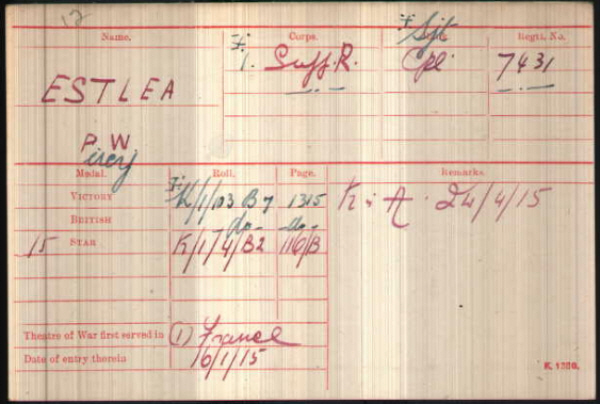 12
Name. Corps. Rank. Regtl. No.
‡ Sjt
‡ 1. Suff. R. Cpl 7431
ESTLEA
P W
Percy
Medal. Roll. Page. Remarks.
VICTORY ‡ K/1/103 B7 1315 K i A. 24/4/15
BRITISH -do- -do-
15 STAR K/1/4/B2 116/B
Theatre of War first served in (1) France
Date of entry therein 10/1/15
K. 1380.